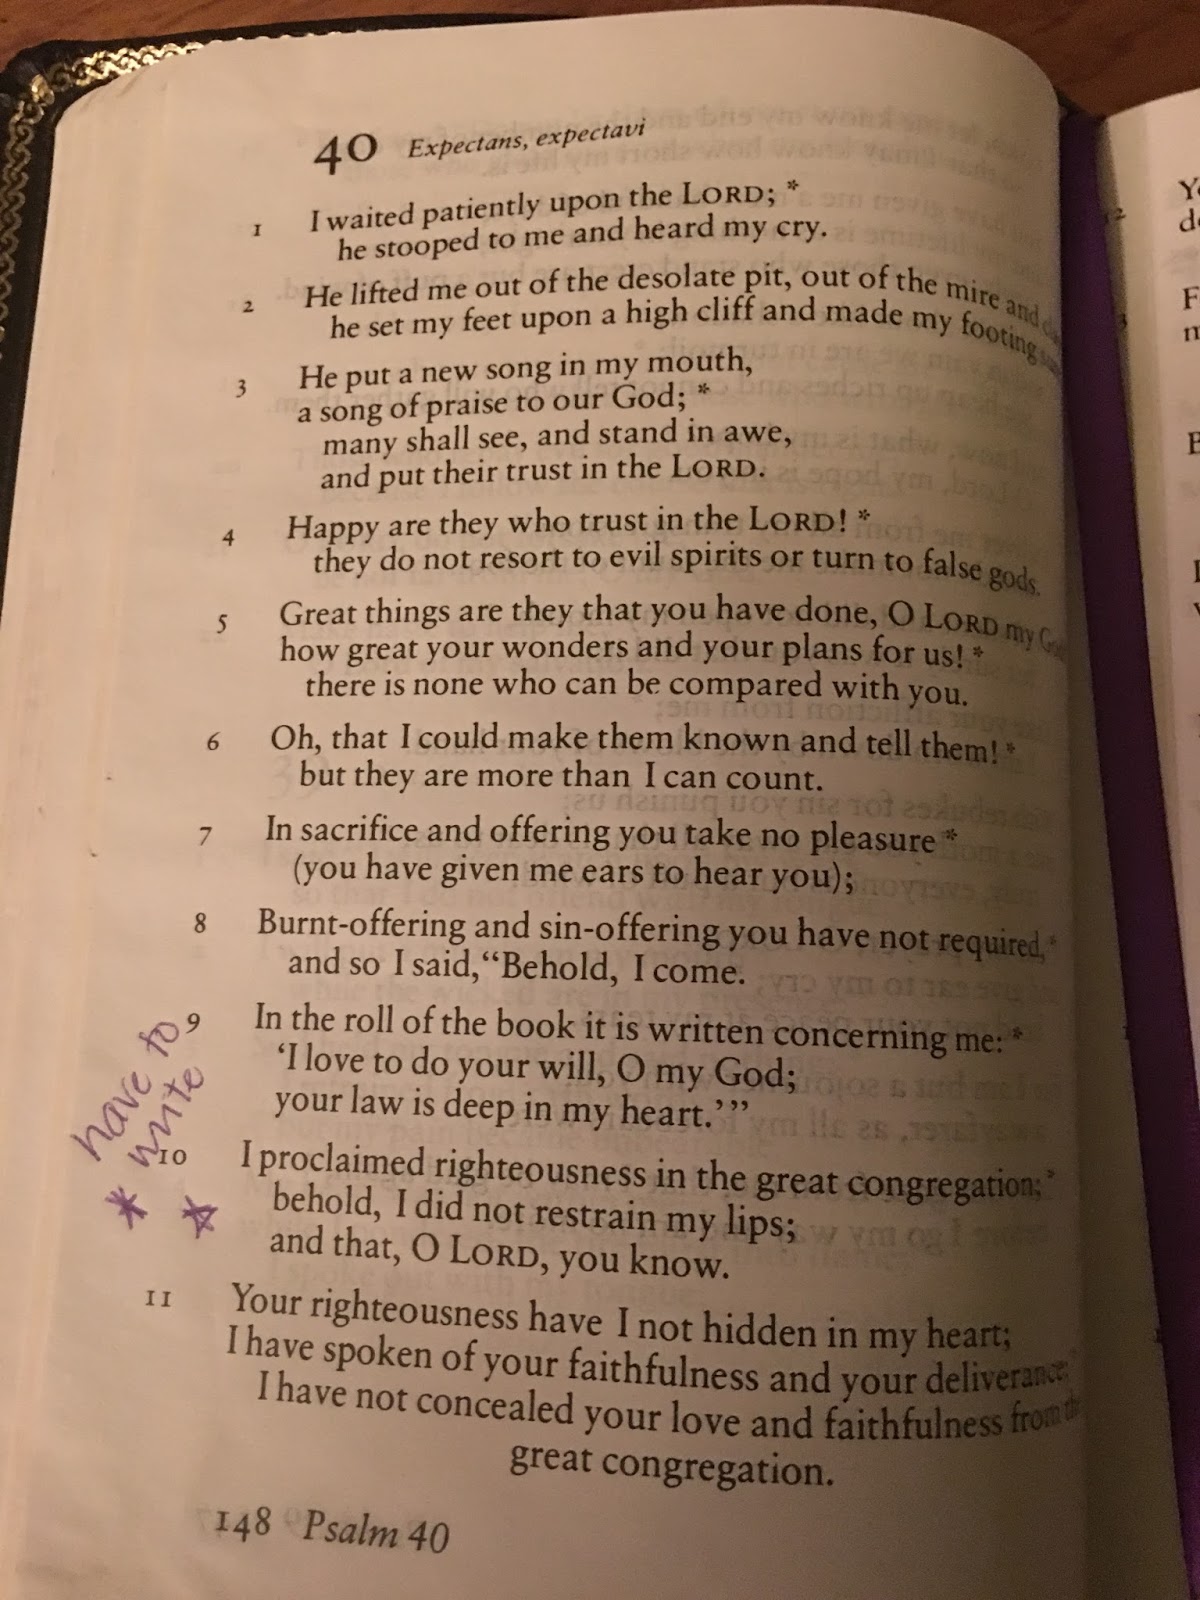 40 Expectans, expectavi
1 I waited patiently upon the LORD; *
he stooped to me and heard my cry.
2 He lifted me out of the desolate pit, out of the mire and
he set my feet upon a high cliff and made my footing
3 He put a new song in my mouth,
a song of praise to our God; *
many shall see, and stand in awe,
and put their trust in the LORD.
4 Happy are they who trust in the LORD! *
they do not resort to evil spirits or turn to false gods.
5 Great things are they that you have done, O LORD my
how great your wonders and your plans for us! *
there is none who can be compared with you.
6 Oh, that I could make them known and tell them! *
but they are more than I can count.
7 In sacrifice and offering you take no pleasure *
(you have given me ears to hear you);
8 Burnt-offering and sin-offering you have not required, *
and so I said, “Behold, I come.
9 In the roll of the book it is written concerning me: *
‘I love to do your will, O my God;
your law is deep in my heart.’”
have to
write
10 I proclaimed righteousness in the great congregation; *
behold, I did not restrain my lips;
and that, O LORD, you know.
11 Your righteousness have I not hidden in my heart;
I have spoken of your faithfulness and your deliverance;
I have not concealed your love and faithfulness from
great congregation.
148 Psalm 40